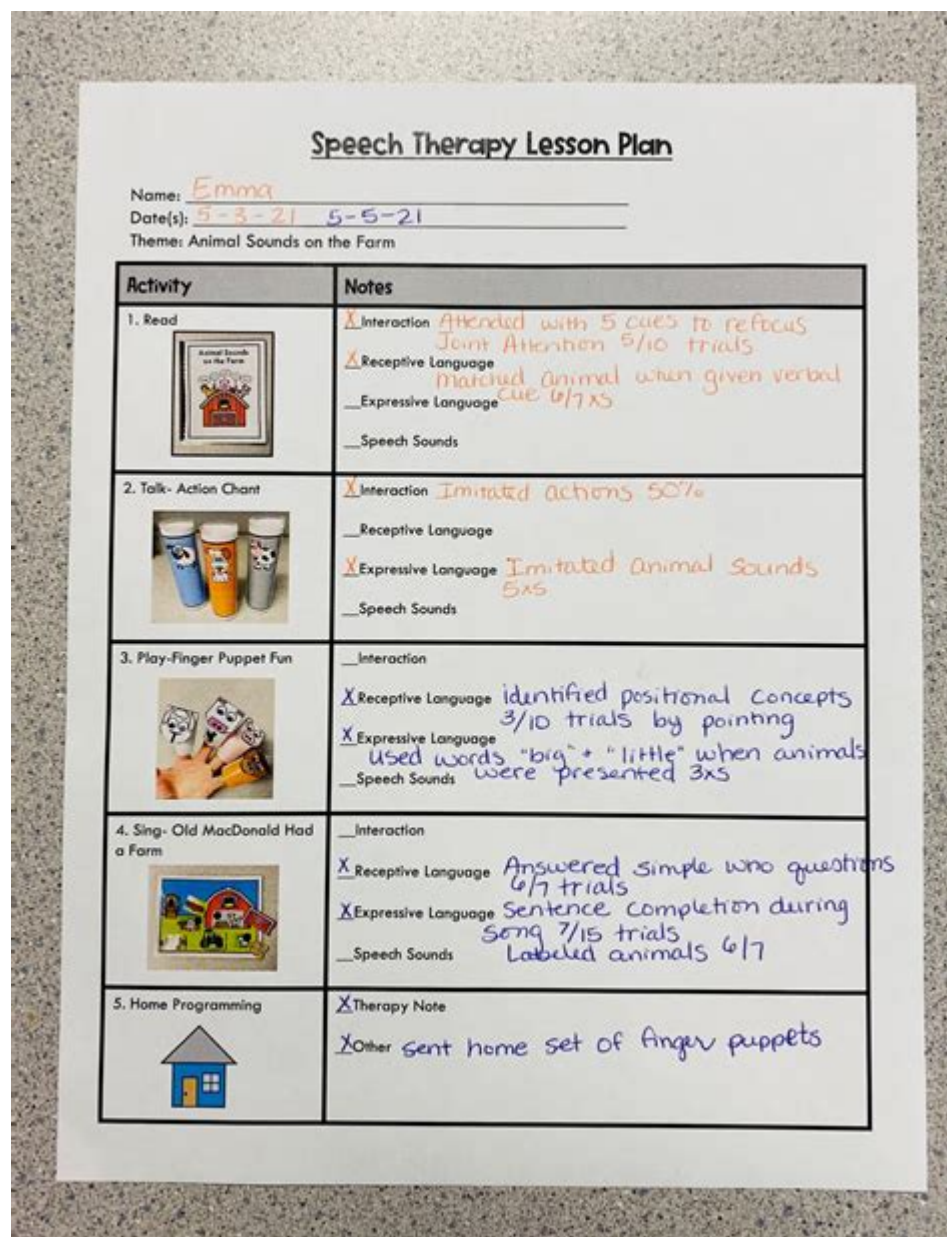 Speech Therapy Lesson Plan
Name: Emma
Date(s): 5-3-21 5-5-21
Theme: Animal Sounds on the Farm
Activity Notes
1. Read
Animal Sounds
on the Farm
X Interaction Attended with 5 cues to refocus
Joint Attention 5/10 trials
X Receptive Language
matched animal when given verbal
cue 6/7 x5
__Expressive Language
__Speech Sounds
2. Talk- Action Chant
X Interaction Imitated actions 50%
__Receptive Language
X Expressive Language Imitated animal sounds
5xs
__Speech Sounds
3. Play-Finger Puppet Fun
__Interaction
X Receptive Language identified positional concepts
3/10 trials by pointing
X Expressive Language
used words "big" + "little" when animals
were presented 3xs
__Speech Sounds
4. Sing- Old MacDonald Had
a Farm
__Interaction
X Receptive Language Answered simple who questions
6/7 trials
X Expressive Language Sentence completion during
song 7/15 trials
Labeled animals 6/7
__Speech Sounds
5. Home Programming
X Therapy Note
X Other sent home set of finger puppets